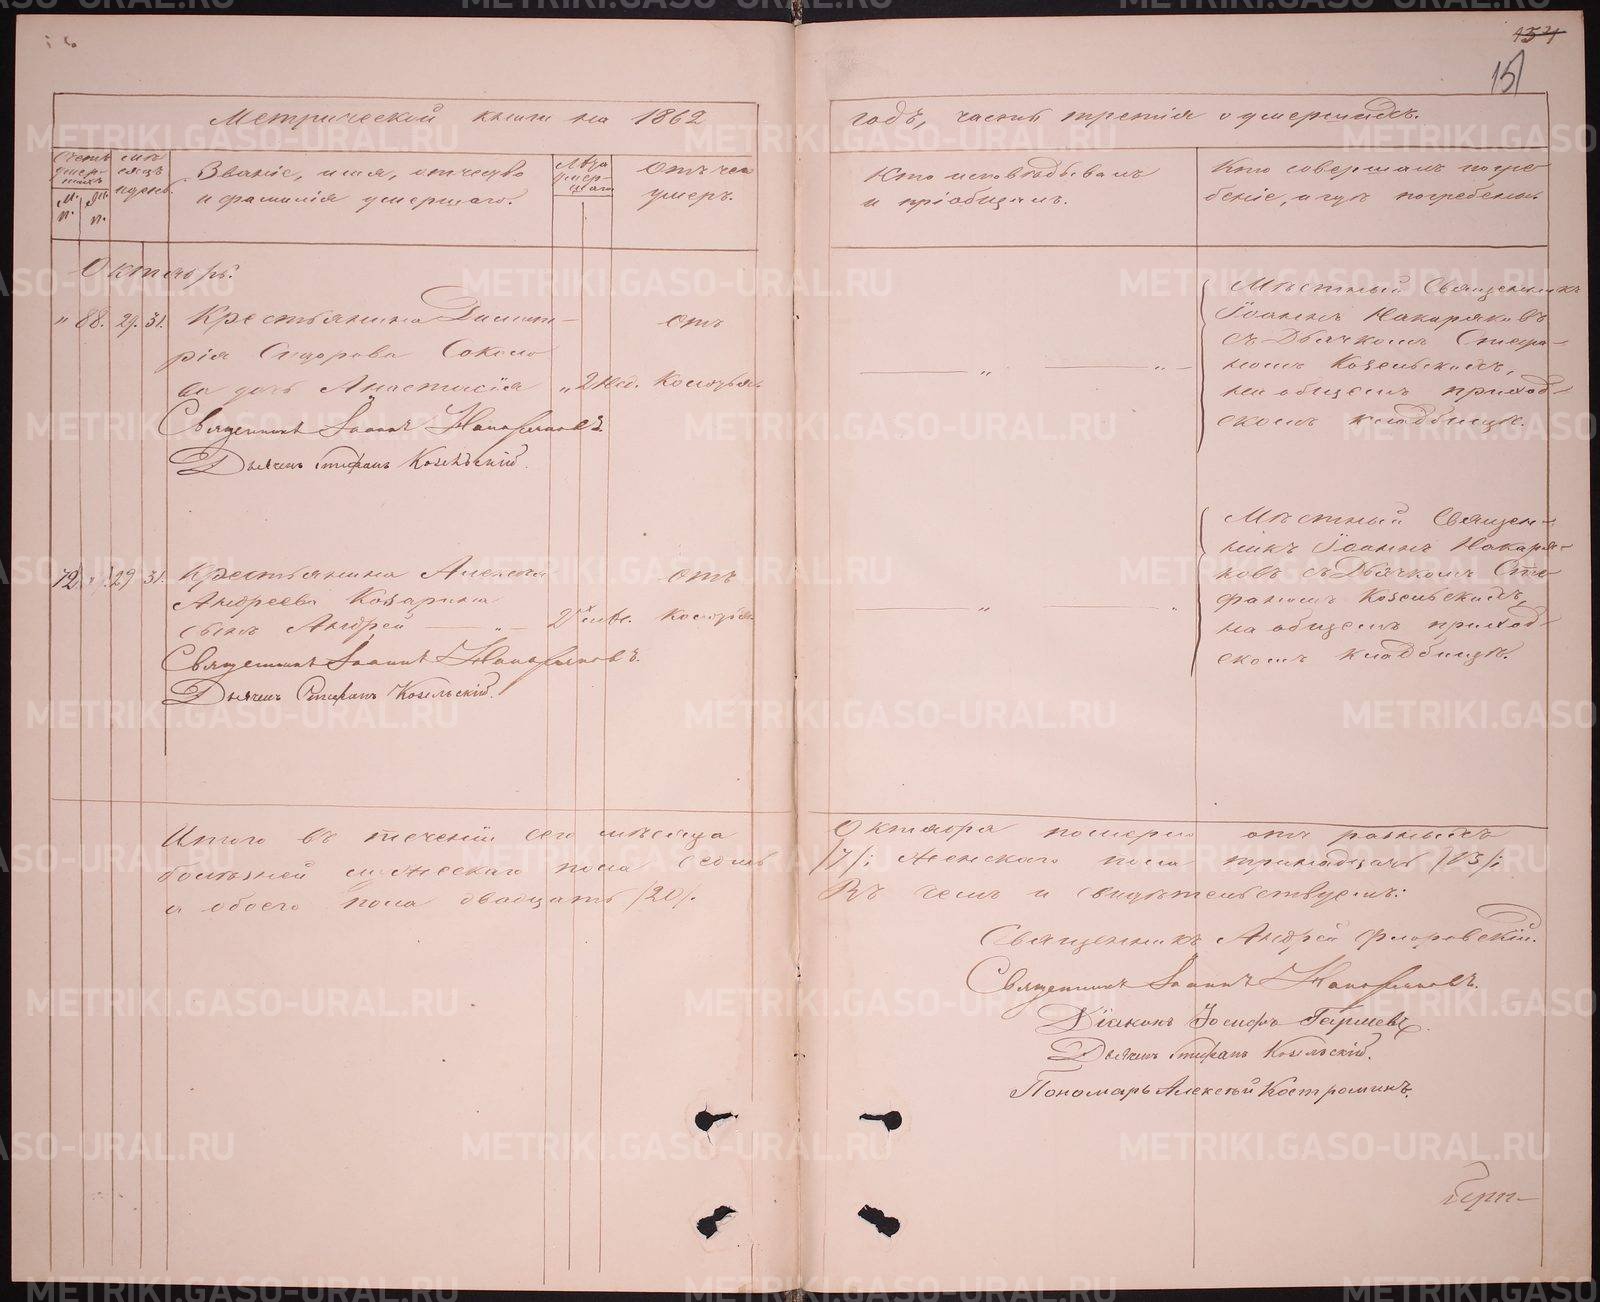 151
Метрической книги на 1862 годъ, часть третія о умершихъ.
Счетъ умер-шихъ
М. п.
Ж. п.
мѣ-сяцъ и день.
Званіе, имя, отчество
и фамилія умершаго.
Лѣта умер-шаго
Отъ чего
умеръ.
Кто исповѣдывалъ
и пріобщалъ.
Кто совершалъ погре
беніе, и гдѣ погребены
Октябрь.
„ 88. 29. 31. Крестьянина Димит-
рія Сидорова Соколо
ва дочь Анастасія „ 2 нед.
отъ
колотья.
Священникъ Іоаннъ Накаряковъ.
Дьячекъ Стефанъ Козельскій.
Мѣстный Священникъ
Іоаннъ Накаряковъ
съ Дьячкомъ Стефа-
номъ Козельскимъ,
на общемъ приход-
скомъ кладбищѣ.
72. „ 29 31. Крестьянина Алексѣя
Андреева Козарина
сынъ Андрей „ 2хъ
отъ
колотья.
Священникъ Іоаннъ Накаряковъ.
Дьячекъ Стефанъ Козельскій.
Мѣстный Священ-
никъ Іоаннъ Накаря-
ковъ съ Дьячкомъ Сте-
фаномъ Козельскимъ,
на общемъ приход-
скомъ кладбищѣ.
Итого въ теченіи сего мѣсяца Октября померло отъ разныхъ
болѣзней мужескаго пола седмь /7/; женскаго пола тринадцать /13/;
и обоего пола двадцать /20/. Въ чемъ и свидѣтельствуемъ:
Священникъ Андрей Флоровскій.
Священникъ Іоаннъ Накаряковъ.
Діаконъ Іосифъ Гаряевъ.
Дьячекъ Стефанъ Козельскій.
Пономарь Алексѣй Костроминъ.
METRIKI.GASO-URAL.RU